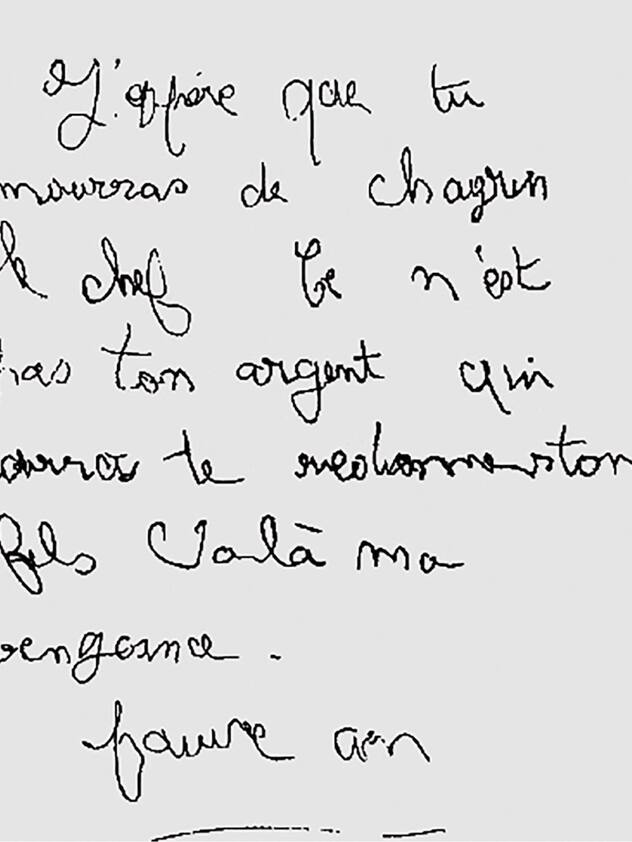 J'espère que tu
mourras de chagrin
le chef Ce n'est
pas ton argent qui
pourra te redonner ton
fils Voilà ma
vengeance .
pauvre con